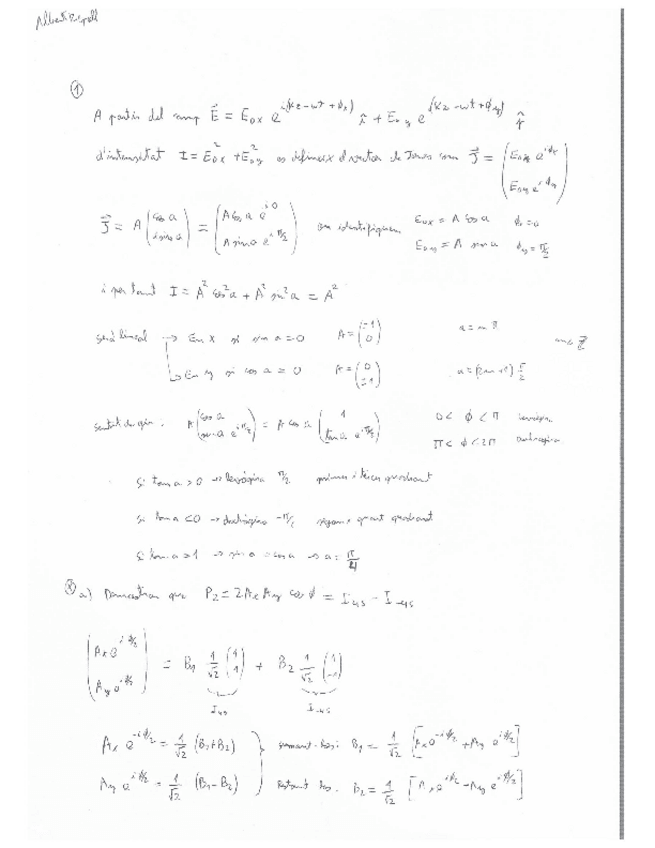 Albert Ripoll
①
A partir del camp E⃗ = E₀ₓ e^{i(kz-wt+ϕₓ)} x̂ + E₀y e^{(kz-wt+ϕy)} ŷ
d'intensitat I = E₀ₓ² + E₀y² es defineix el vector de Jones com J⃗ = (E₀ₓ e^{iϕₓ} / E₀y e^{iϕy})
J⃗ = A (cos a / i sin a) = (A cos a e^{i0} / A sin a e^{iπ/2}) on identifiquem E₀ₓ = A cos a ϕₓ = 0
E₀y = A sin a ϕy = π/2
i per tant I = A² cos² a + A² sin² a = A²
serà lineal → En x si sin a = 0 A = (±1 / 0) a = m π m ∈ ℤ
↳ En y si cos a = 0 A = (0 / ±1) a = (2m+1) π/2
sentit de gir: A (cos a / sin a e^{iπ/2}) = A cos a (1 / tan a e^{iπ/2}) 0 < ϕ < π levògira
π < ϕ < 2π dextrògira
Si tan a > 0 → levògira π/2 primer i tercer quadrant
Si tan a < 0 → dextrògira -π/2 segon i quart quadrant
Si tan a = 1 → sin a = cos a → a = π/4
a) Demostrar que P₂ = 2AₓAy cos ϕ = I₄₅ - I₋₄₅
(Aₓ e^{-iϕ/2} / Ay e^{iϕ/2}) = B₁ 1/√2 (1 / 1) + B₂ 1/√2 (1 / -1)
I₄₅ I₋₄₅
Aₓ e^{-iϕ/2} = 1/√2 (B₁+B₂) } sumant-les: B₁ = 1/√2 [Aₓ e^{-iϕ/2} + Ay e^{iϕ/2}]
Ay e^{iϕ/2} = 1/√2 (B₁-B₂) } restant les: B₂ = 1/√2 [Aₓ e^{-iϕ/2} - Ay e^{iϕ/2}]